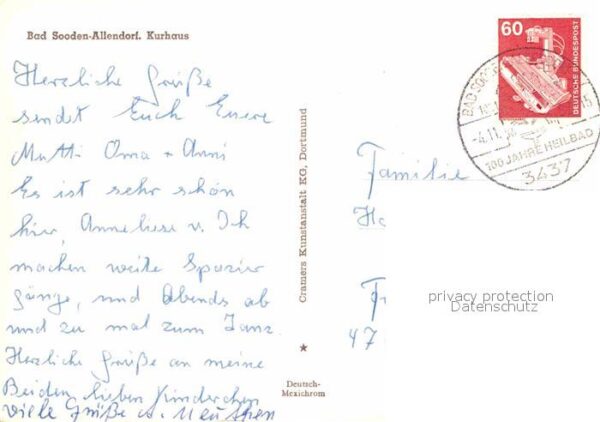 Bad Sooden-Allendorf. Kurhaus
Herzliche Grüße
sendet Euch Euere
Mutti Oma + Anni
Es ist sehr schön
hir, Anneliese u. Ich
machen weite Spazier
gänge, und Abends ab
und zu mal zum Tanz.
Herzliche Grüße an meine
Beiden lieben Kinderchen
viele Grüße u.
Cramers Kunstanstalt KG, Dortmund
Deutsch-
Mexichrom
60
DEUTSCHE BUNDESPOST
BAD SOOD
-4.11.
100 JAHRE HEILBAD
3437
Familie
47
privacy protection
Datenschutz